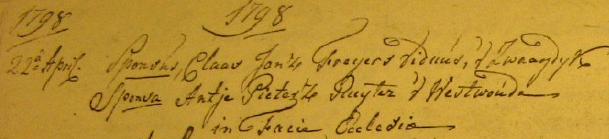 1798 1798
22a April. Sponsus, Claas Jansz Freyers viduus, V Zwaagdyk
Sponsa Antje Pietersz Ruyter V Westwoude
in Facie Ecclesiæ